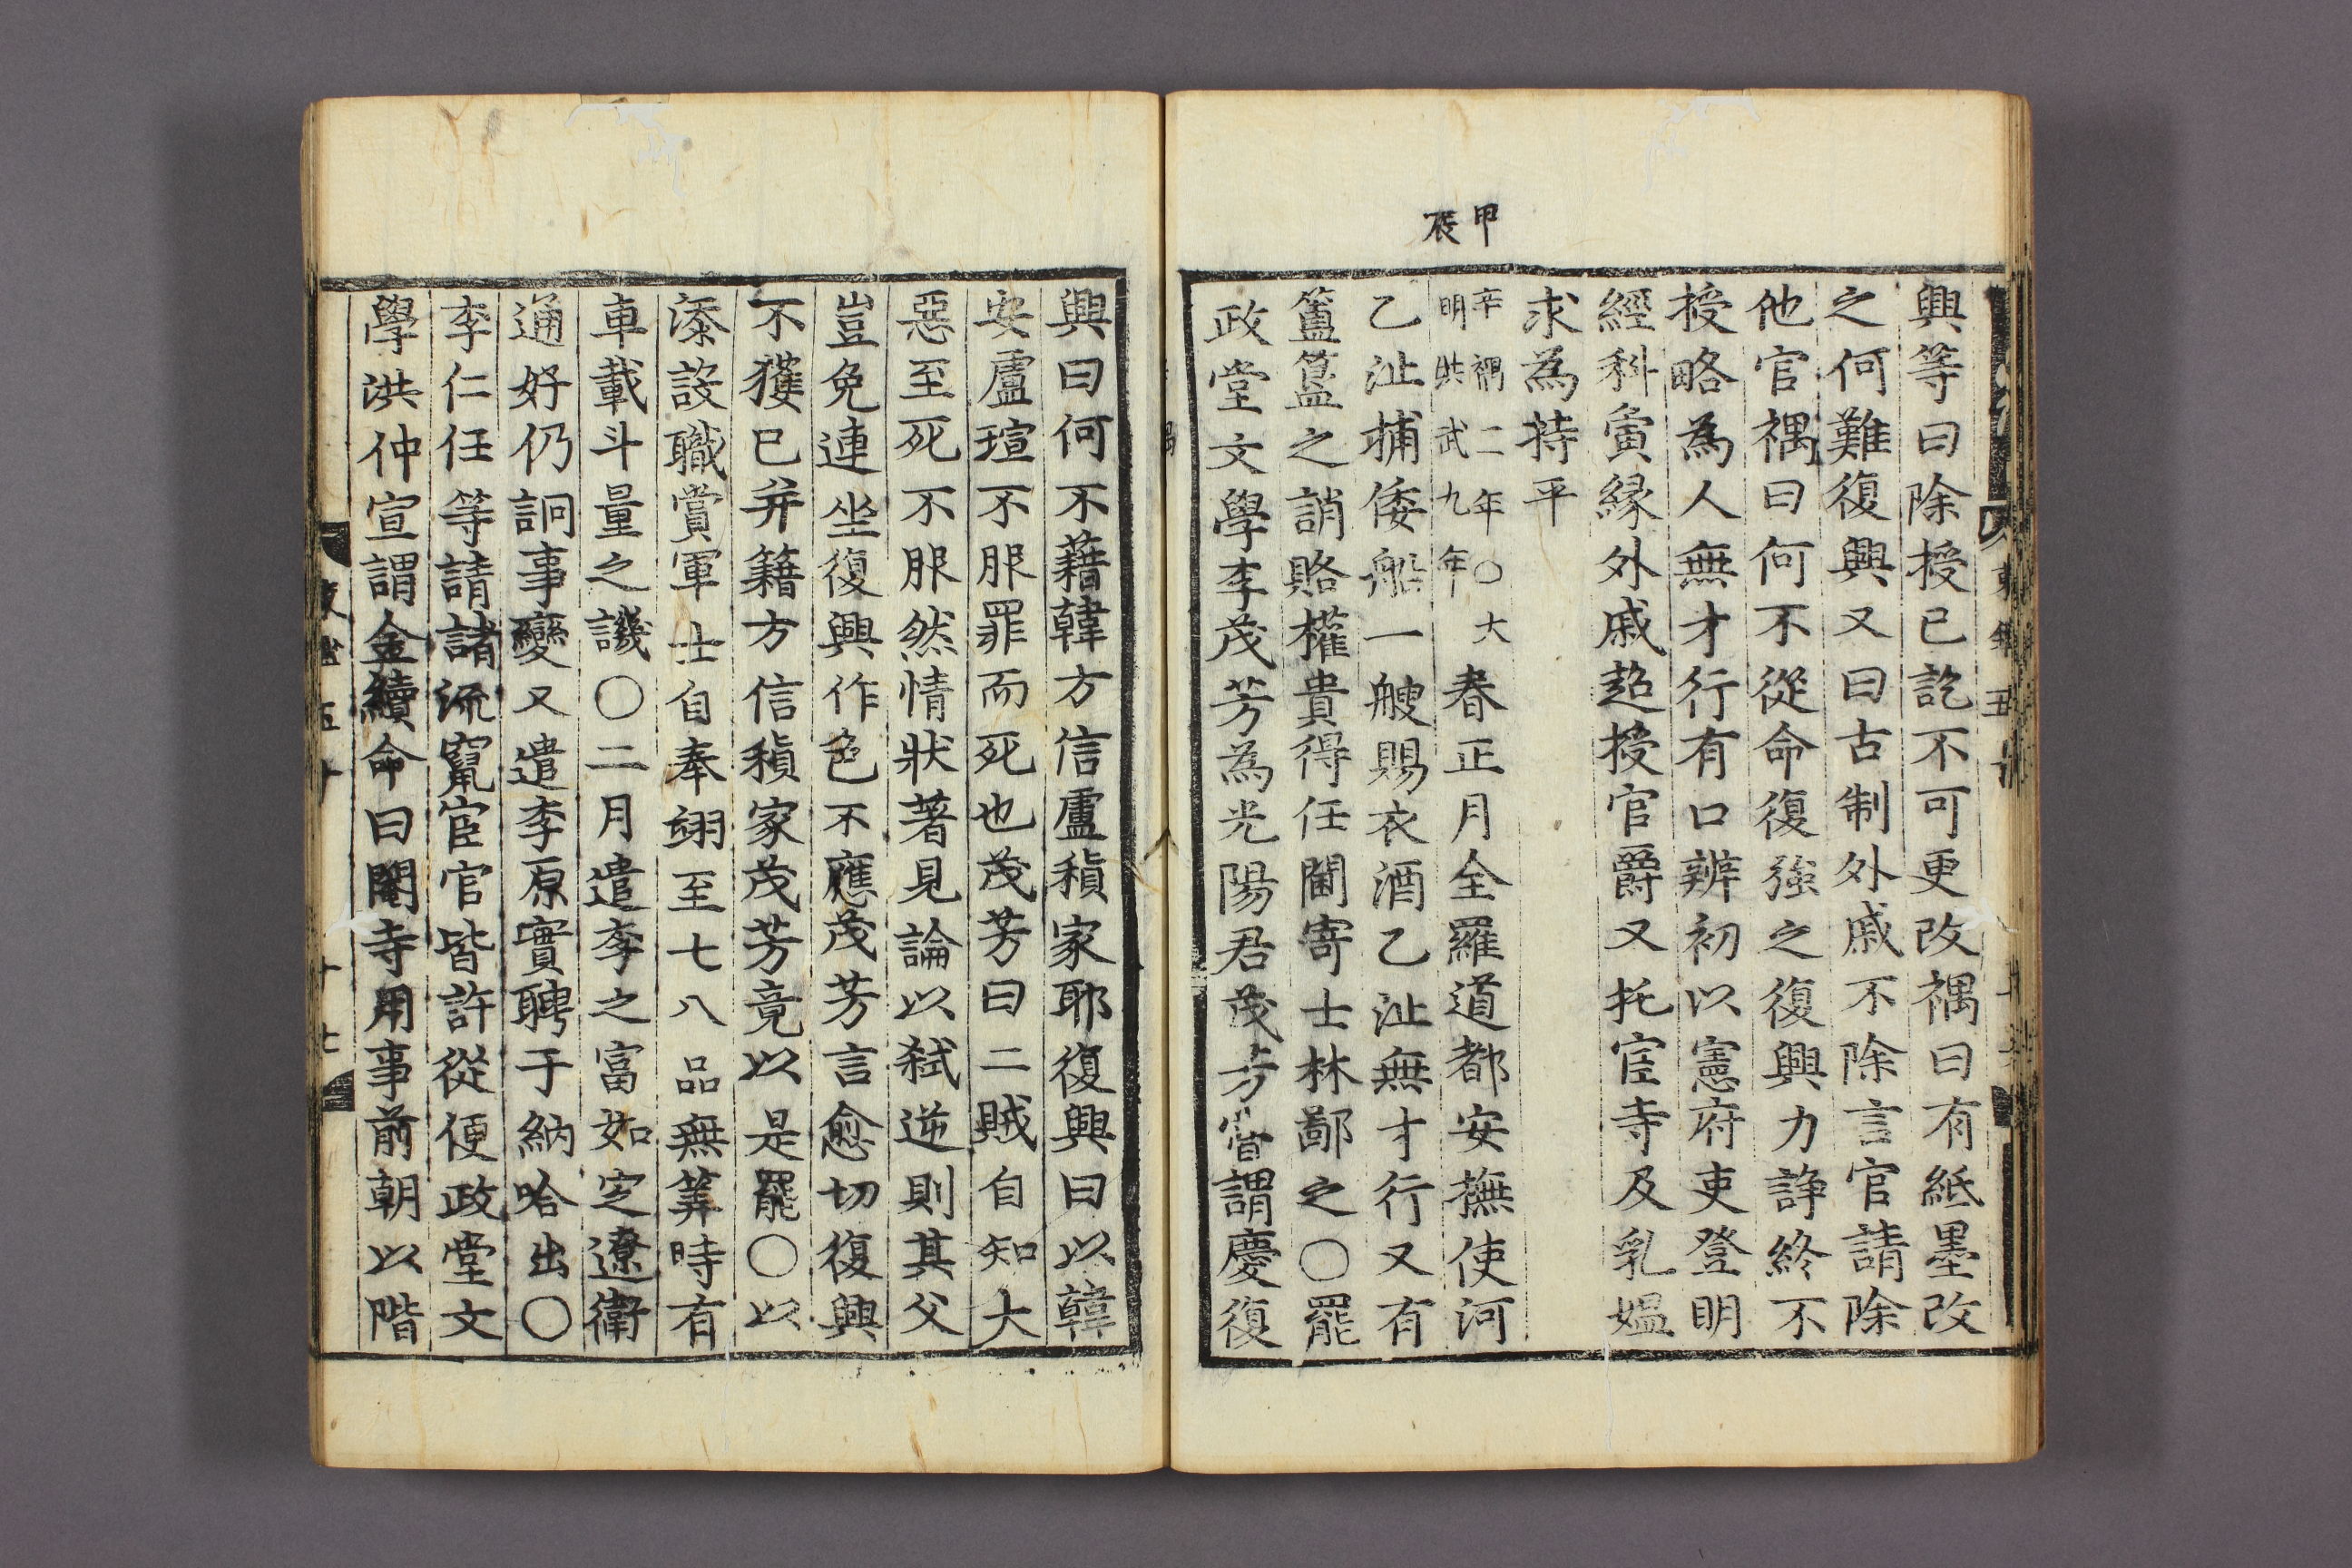 甲辰
興等曰除授已訖不可更改禑曰有紙墨改
之何難復興又曰古制外戚不除言官請除
他官禑曰何不從命復強之復興力諍終不
授略為人無才行有口辨初以憲府吏登明
經科夤緣外戚超授官爵又托宦寺及乳媼
求為持平
辛禑二年○大
明洪武九年
春正月全羅道都安撫使河
乙沚捕倭船一艘賜衣酒乙沚無才行又有
簠簋之誚賂權貴得任閫寄士林鄙之○罷
政堂文學李茂芳為光陽君茂芳嘗謂慶復
興曰何不藉韓方信盧稹家耶復興曰以韓
安盧瑄不服罪而死也茂芳曰二賊自知大
惡至死不服然情狀著見論以弑逆則其父
豈免連坐復興作色不應茂芳言愈切復興
不獲已并籍方信稹家茂芳竟以是罷○以
添設職賞軍士自奉翊至七八品無筭時有
車載斗量之譏○二月遣李之富如定遼衛
通好仍詗事變又遣李原實聘于納哈出○
李仁任等請諸流竄宦官皆許從便政堂文
學洪仲宣謂金續命曰閹寺用事前朝以階